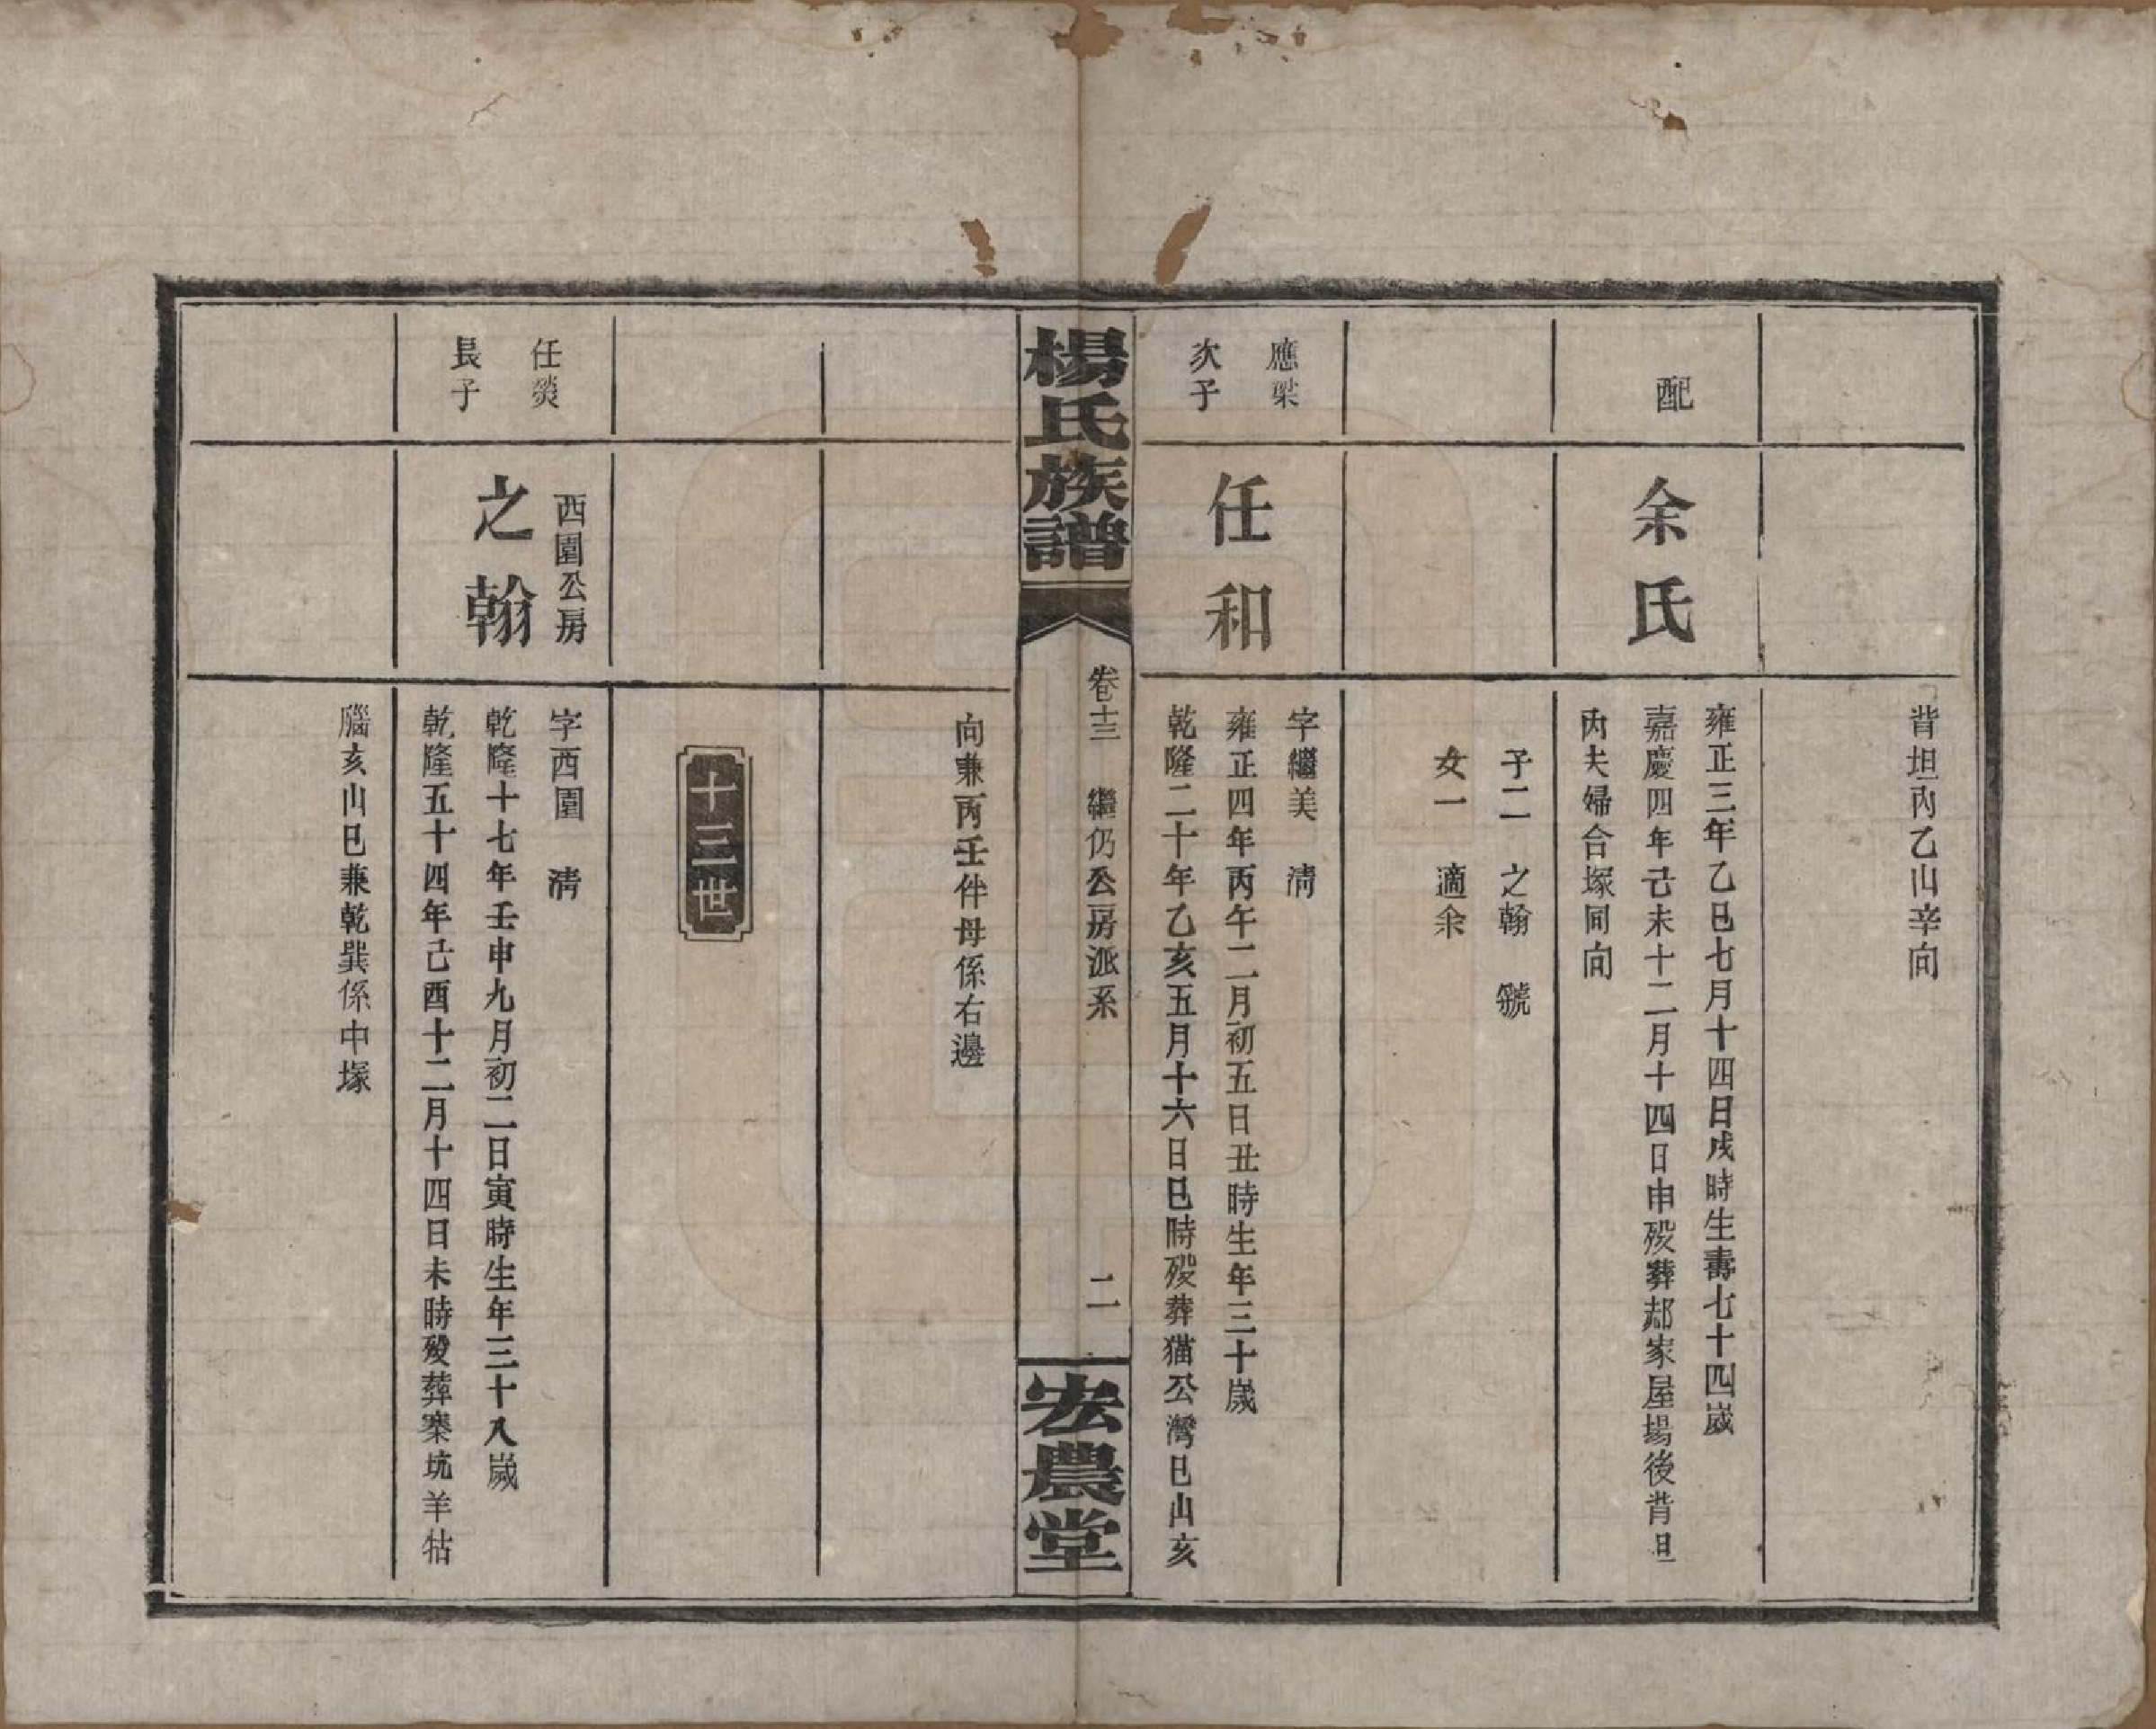 背坦內乙山辛向
配
余氏
雍正三年乙巳七月十四日戌時生壽七十四歲
嘉慶四年己未十二月十四日申歿葬郝家屋場後背坦
內夫婦合塚同向
子二　之翰　號
女一　適余
應梁
次子
任和
字繼美　清
雍正四年丙午二月初五日丑時生年三十歲
乾隆二十年乙亥五月十六日巳時歿葬猫公灣巳山亥
楊氏族譜
卷十三　繼仍公房派系
二
宏農堂
向兼丙壬件母係右邊
十三世
任燚
長子
西園公房
之翰
字西園　清
乾隆十七年壬申九月初二日寅時生年三十八歲
乾隆五十四年己酉十二月十四日未時歿葬寨坑羊牯
腦亥山巳兼乾巽係中塚